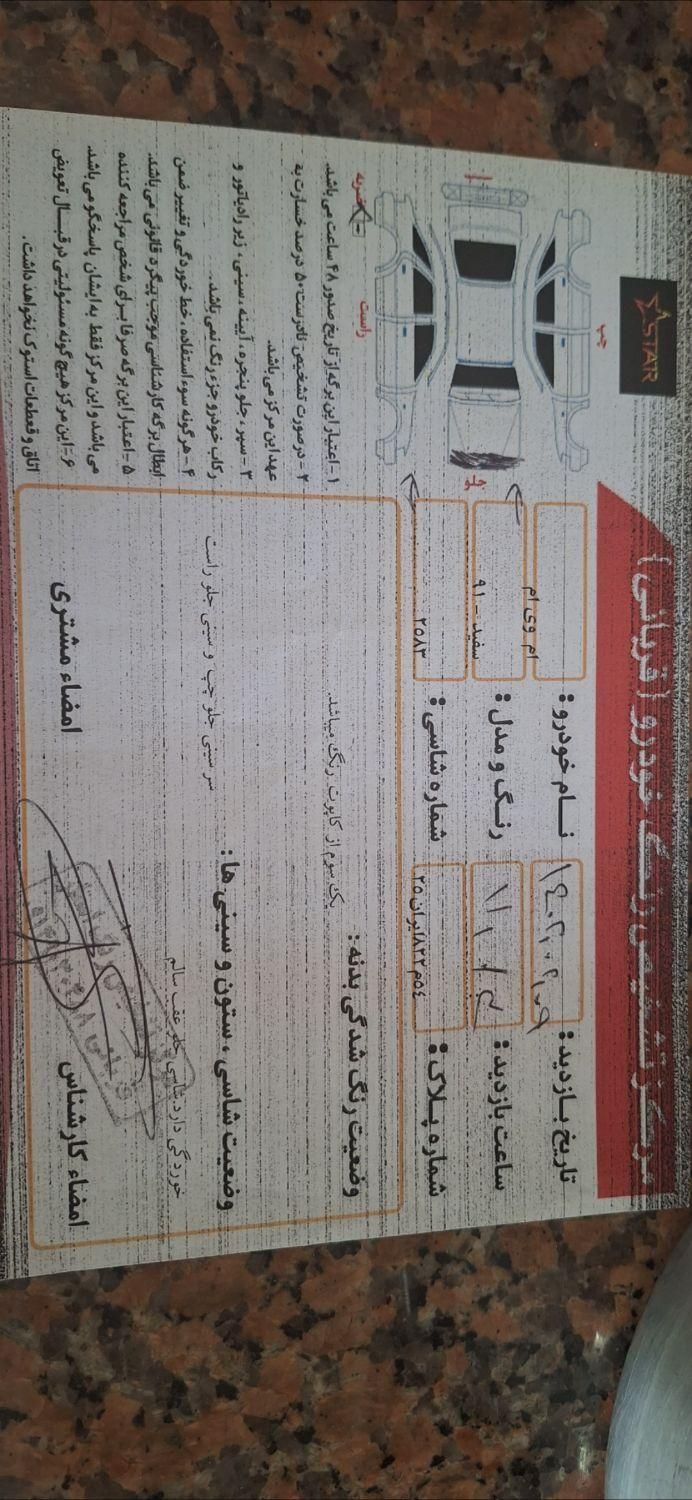 STAR
مرکز تشخیص رنگ خودرو (قربانی)
نام خودرو: ام وی ام
تاریخ بازدید: ۱۴۰۲,۰۲,۰۹
رنگ و مدل: سفید - ۹۱
ساعت بازدید:
شماره شاسی: ۲۵۸۳
شماره پلاک:
چپ
جلو
راست
ضربه
وضعیت رنگ شدگی بدنه:
یک سوم از کاپوت رنگ میباشد.
وضعیت شاسی، ستون و سینی ها:
سر سینی جلو چپ و سینی جلو راست
خوردگی دارد شاسی جلو عقب سالم
۱- اعتبار این برگه از تاریخ صدور ۴۸ ساعت می باشد.
۲- درصورت تشخیص نادرست ۵۰ درصد خسارت به
عهد این مرکز می باشد.
۳- سپر، جلو پنجره، آیینه، سینی، زیر رادیاتور و
رکاب خودرو جزء رنگ نمی باشد.
۴- هرگونه سوء استفاده، خط خوردگی و تغییر ضمن
ابطال برگه کارشناسی موجب پیگرد قانونی می باشد.
۵- اعتبار این برگه صرفا برای شخص مراجعه کننده
می باشد و این مرکز فقط به ایشان پاسخگو می باشد.
۶- این مرکز هیچ گونه مسئولیتی در قبال تعویض
اتاق و قطعات استوک نخواهد داشت.
امضاء مشتری
امضاء کارشناس